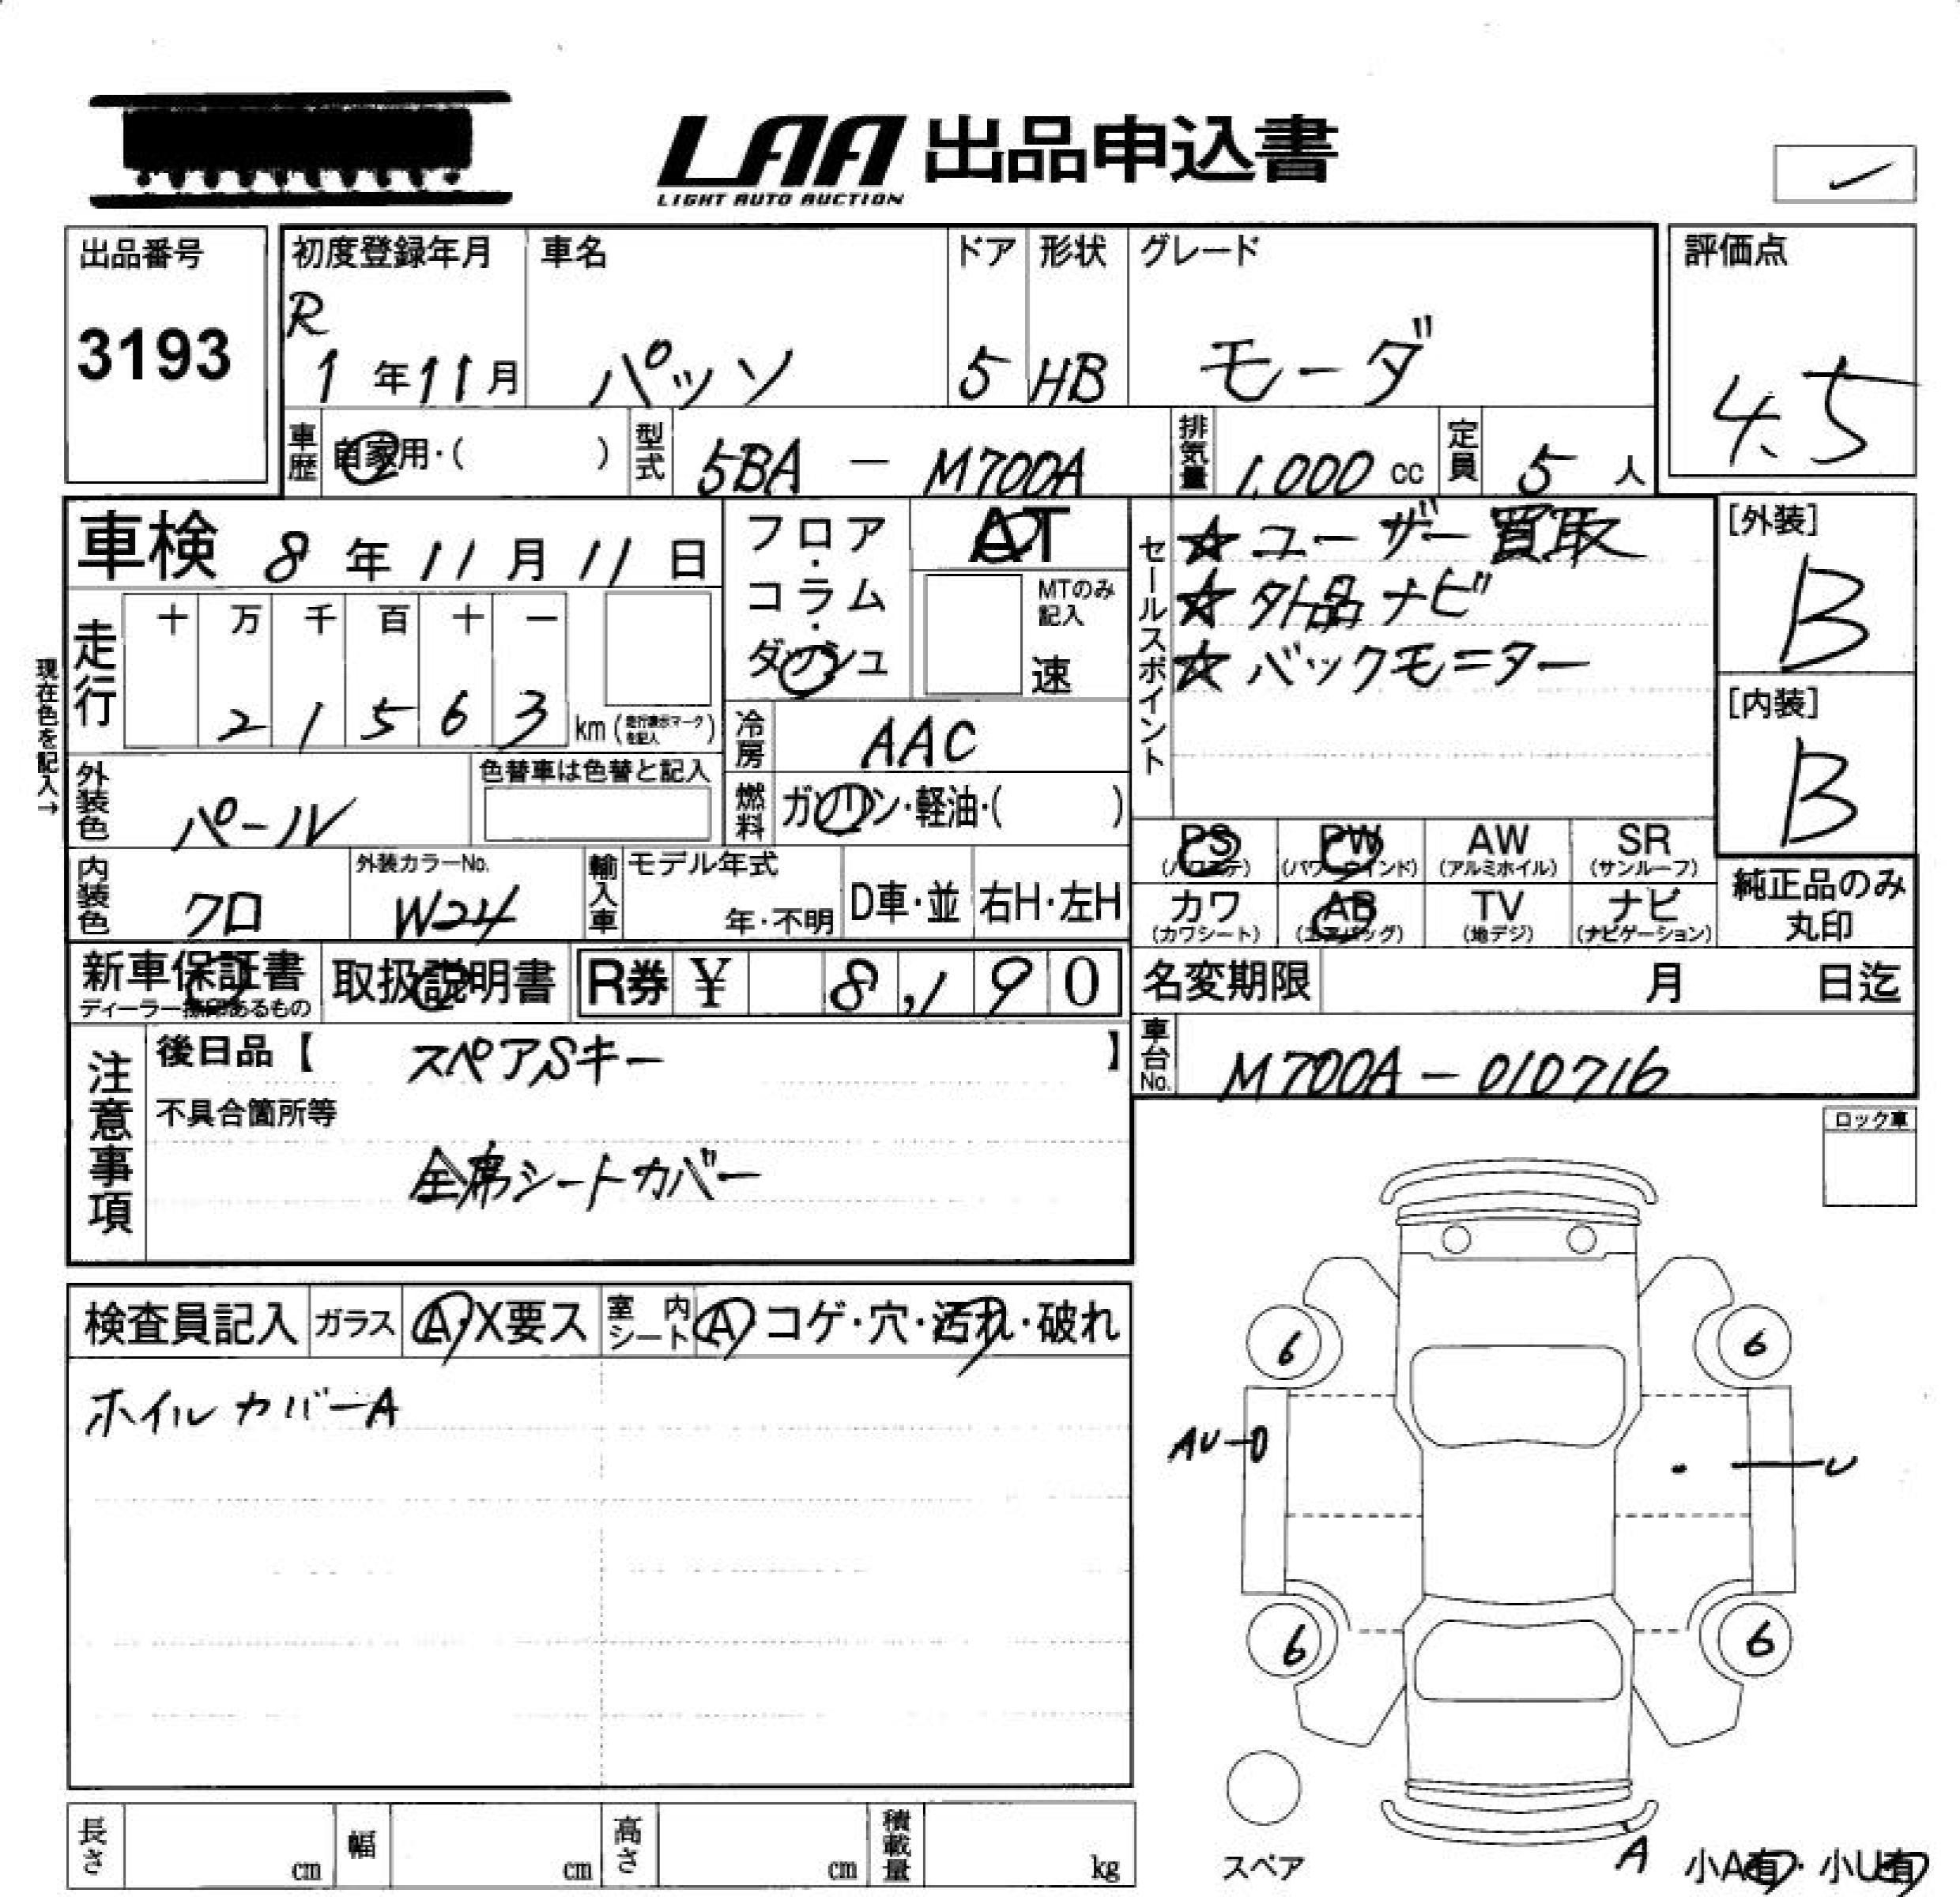 LAA 出品申込書
LIGHT AUTO AUCTION
出品番号
3193
初度登録年月
R
1 年 11 月
車名
パッソ
ドア
5
形状
HB
グレード
モーダ
評価点
4.5
車歴 自家用・( )
型式 5BA - M700A
排気量 1,000 cc
定員 5 人
車検 8 年 11 月 11 日
フロア・コラム・ダッシュ
AT
MTのみ記入
速
セールスポイント
☆ ユーザー買取
☆ 外品ナビ
☆ バックモニター
[外装]
B
[内装]
B
現在色を記入→
走行 十 万 千 百 十 一
2 1 5 6 3 km (走行表示マークを記入)
冷房 AAC
外装色 パール
色替車は色替と記入
燃料 ガソリン・軽油・( )
PS (パワステ) PW (パワーウインド) AW (アルミホイル) SR (サンルーフ)
カワ (カワシート) AB (エアバッグ) TV (地デジ) ナビ (ナビゲーション)
純正品のみ丸印
内装色 クロ
外装カラーNo.
W24
輸入車 モデル年式
年・不明
D車・並 右H・左H
新車保証書
ディーラー捺印あるもの
取扱説明書
R券 ¥ 8,190
名変期限 月 日迄
車台No. M700A-010716
注意事項
後日品【 スペアSキー 】
不具合箇所等
全席シートカバー
ロック車
検査員記入 ガラス A・X要ス 室内シート A コゲ・穴・汚れ・破れ
ホイルカバーA
6 6
AU U
6 6
スペア
A
小A有・小U有
長さ cm 幅 cm 高さ cm 積載量 kg